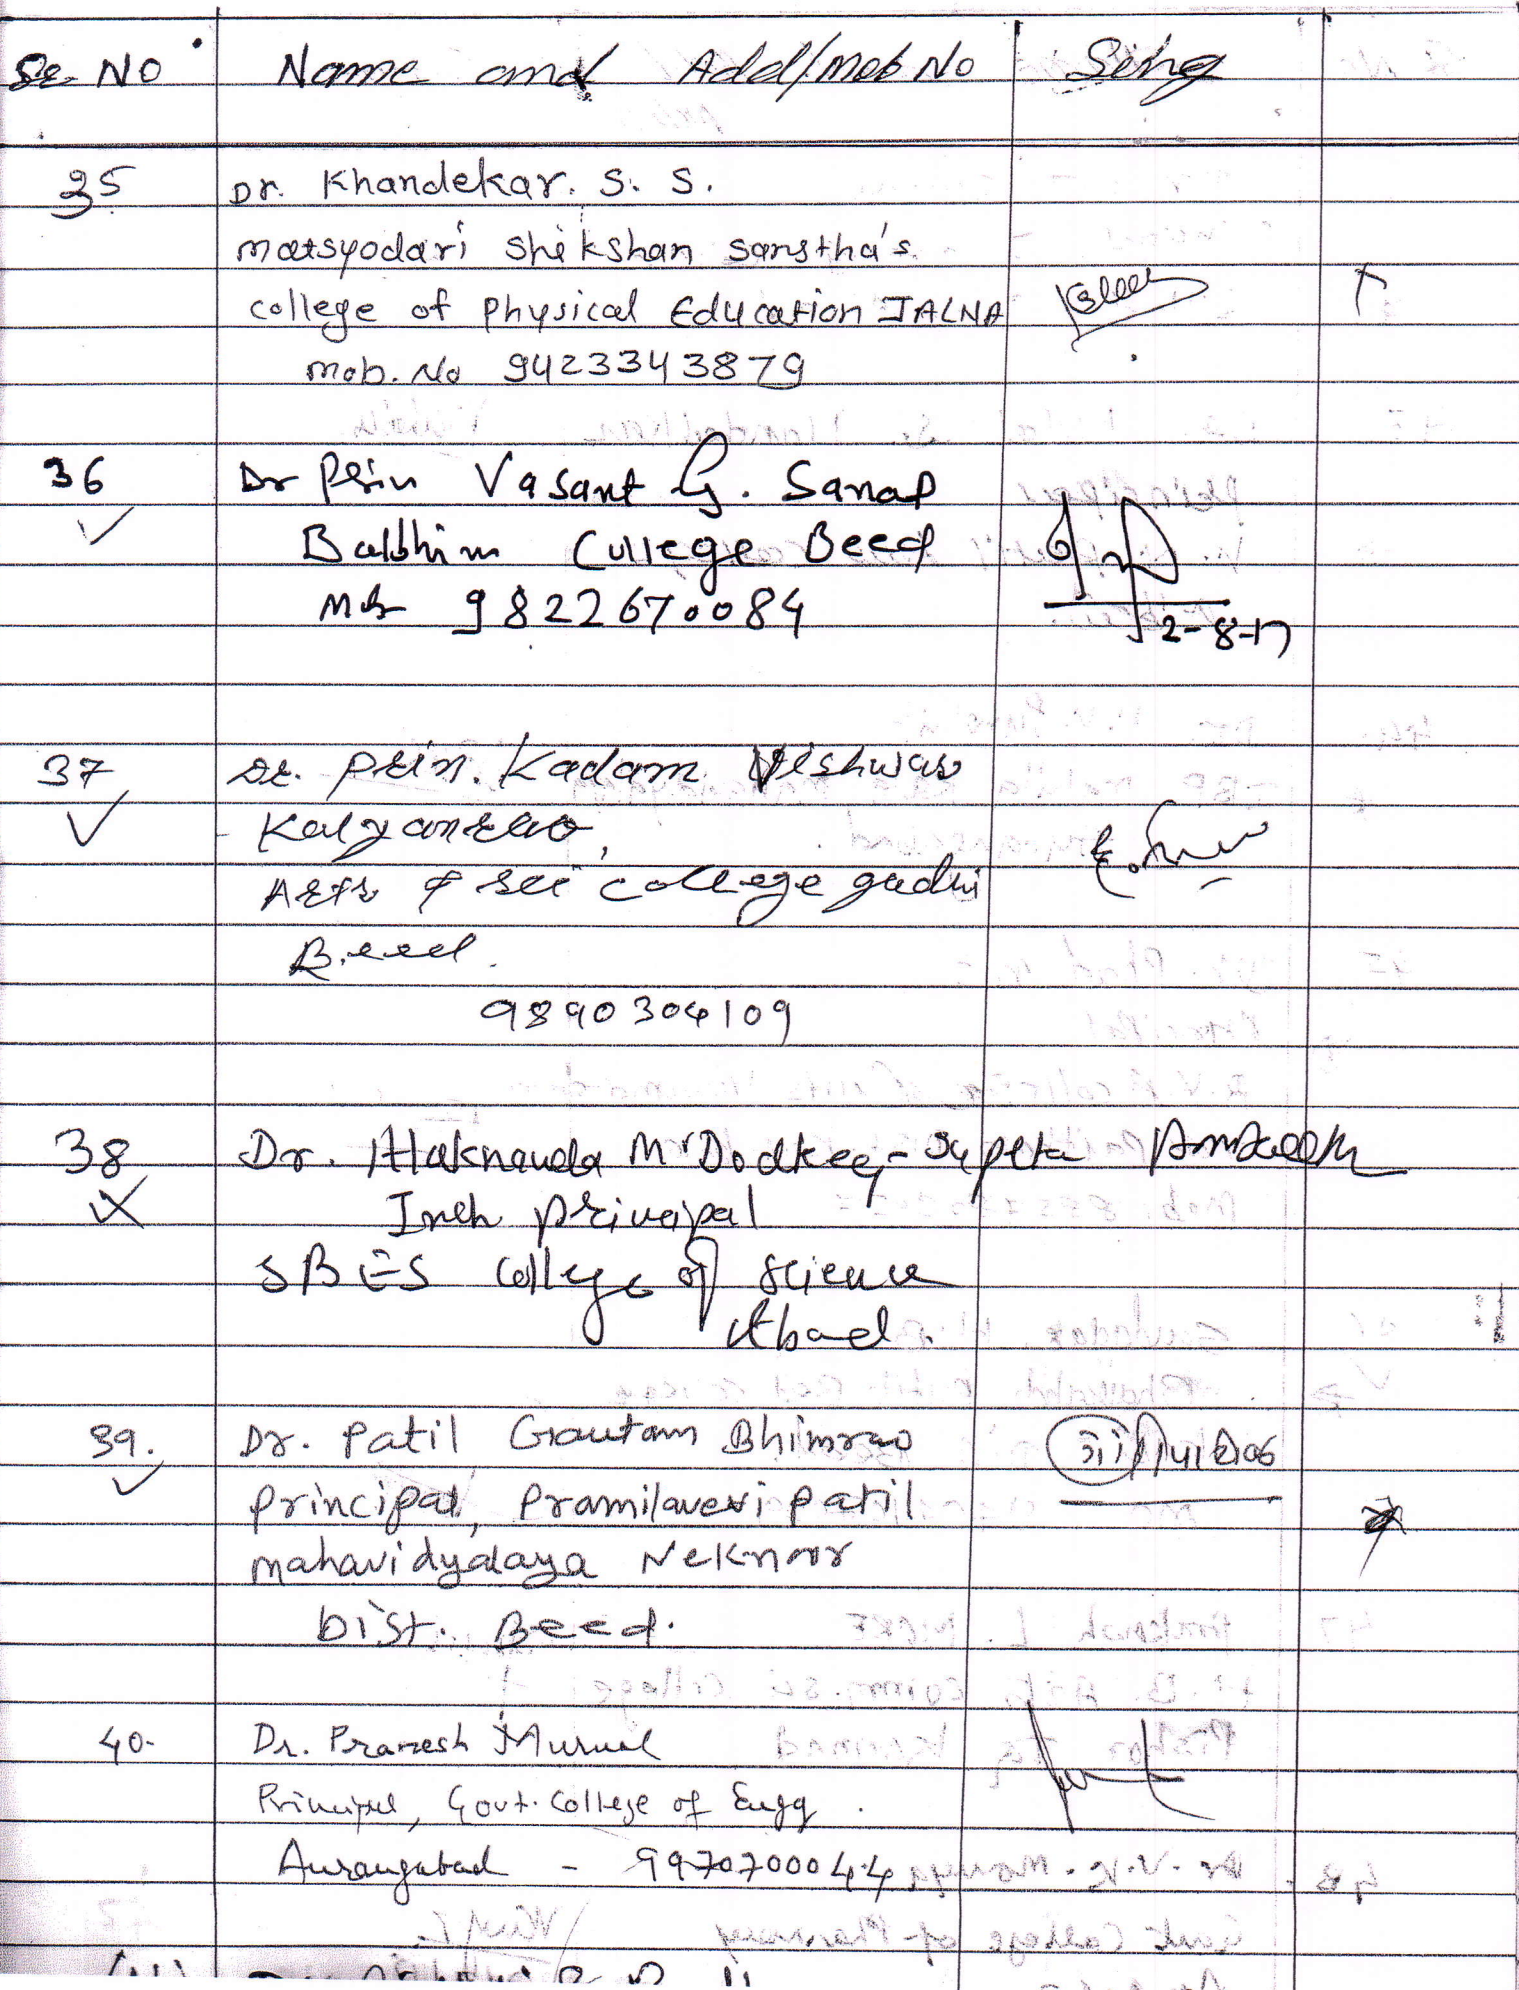 Sr. No Name and Add/Mob No Sing
35 Dr. Khandekar. S. S.
Matsyodari Shikshan Sanstha's
college of Physical Education JALNA
Mob. No 9423343879
36 Dr Prin Vasant G. Sanap
Balbhim College Beed
Mob 9822670084
2-8-17
37 Dr. Prin. Kadam Vishwas
Kalyanrao,
Arts & Sci College gadhi
Beed.
9890304109
38 Dr. Alaknanda M
Inch principal
SBES College of Science
Abad.
39. Dr. Patil Gautam Bhimrao
principal, Pramilavevi patil
mahavidyalaya Neknoor
Dist. Beed.
40. Dr. Pranesh Murnal
Principal, Govt. College of Engg.
Aurangabad - 9970700044